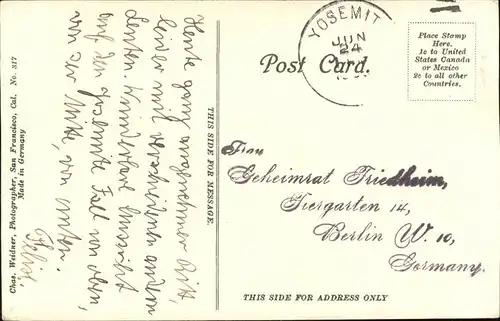 YOSEMIT
JUN
24
Post Card.
Place Stamp
Here.
1c to United
States Canada
or Mexico
2c to all other
Countries.
Heute ganz angenehmer Ritt,
leider mit verschiedenen andern
Leuten. Wunderbare Aussicht
auf den Yosemite Fall von oben,
von der Mitte, von unten.
THIS SIDE FOR MESSAGE.
Chas. Weidner, Photographer, San Francisco, Cal. No. 317
Made in Germany
Frau
Geheimrat Friedheim,
Tiergarten 14,
Berlin W. 10,
Germany.
THIS SIDE FOR ADDRESS ONLY